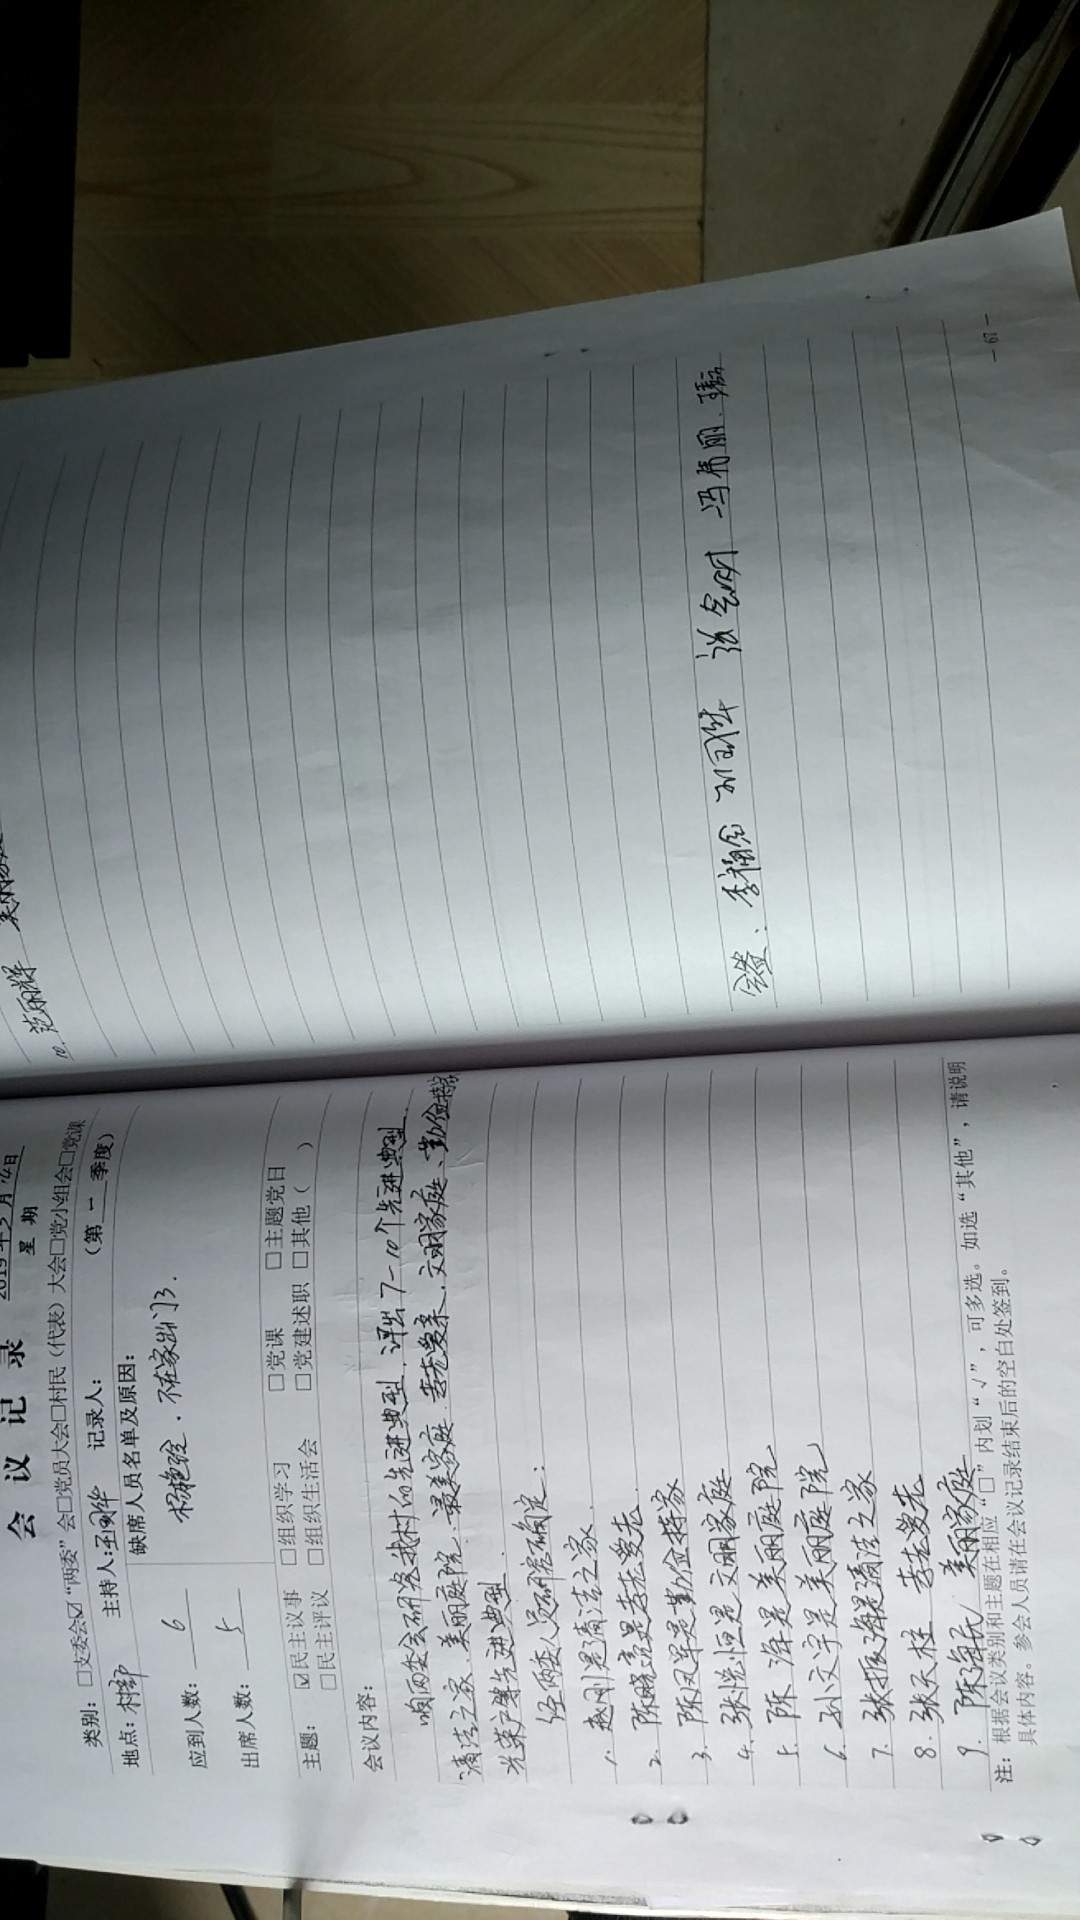 会 议 记 录
2019年3月4日
星 期
类别：□支委会☑“两委”会□党员大会□村民（代表）大会□党小组会□党课
（第 一 季度）
地点：村部 主持人： 记录人：
应到人数： 6 缺席人员名单及原因：
不在家出门了.
出席人数： 5
主题： ☑民主议事 □组织学习 □党课 □主题党日
□民主评议 □组织生活会 □党建述职 □其他（ ）
会议内容：
两委会研究我村的先进典型，评出7-10个先进典型.
清洁之家.美丽庭院.最美家庭.孝老爱亲.文明家庭、勤俭持家
光荣户等先进典型.
经两委人员研居确定：
1. 赵刚是清洁之家.
2. 陈晓亮是孝老爱老.
3. 陈凤军是勤俭持家
4. 张悦恒是文明家庭
5. 陈海是美丽庭院
6. 孙文宇是美丽庭院
7. 张振海是清洁之家
8. 张天柱 孝老爱老
9. 陈海氏 美丽家庭
注：根据会议类别和主题在相应“□”内划“√”，可多选。如选“其他”，请说明
具体内容。参会人员请在会议记录结束后的空白处签到。
10. 范丽辉 美丽家庭
李福会 刘国性 冯秀丽.
— 67 —